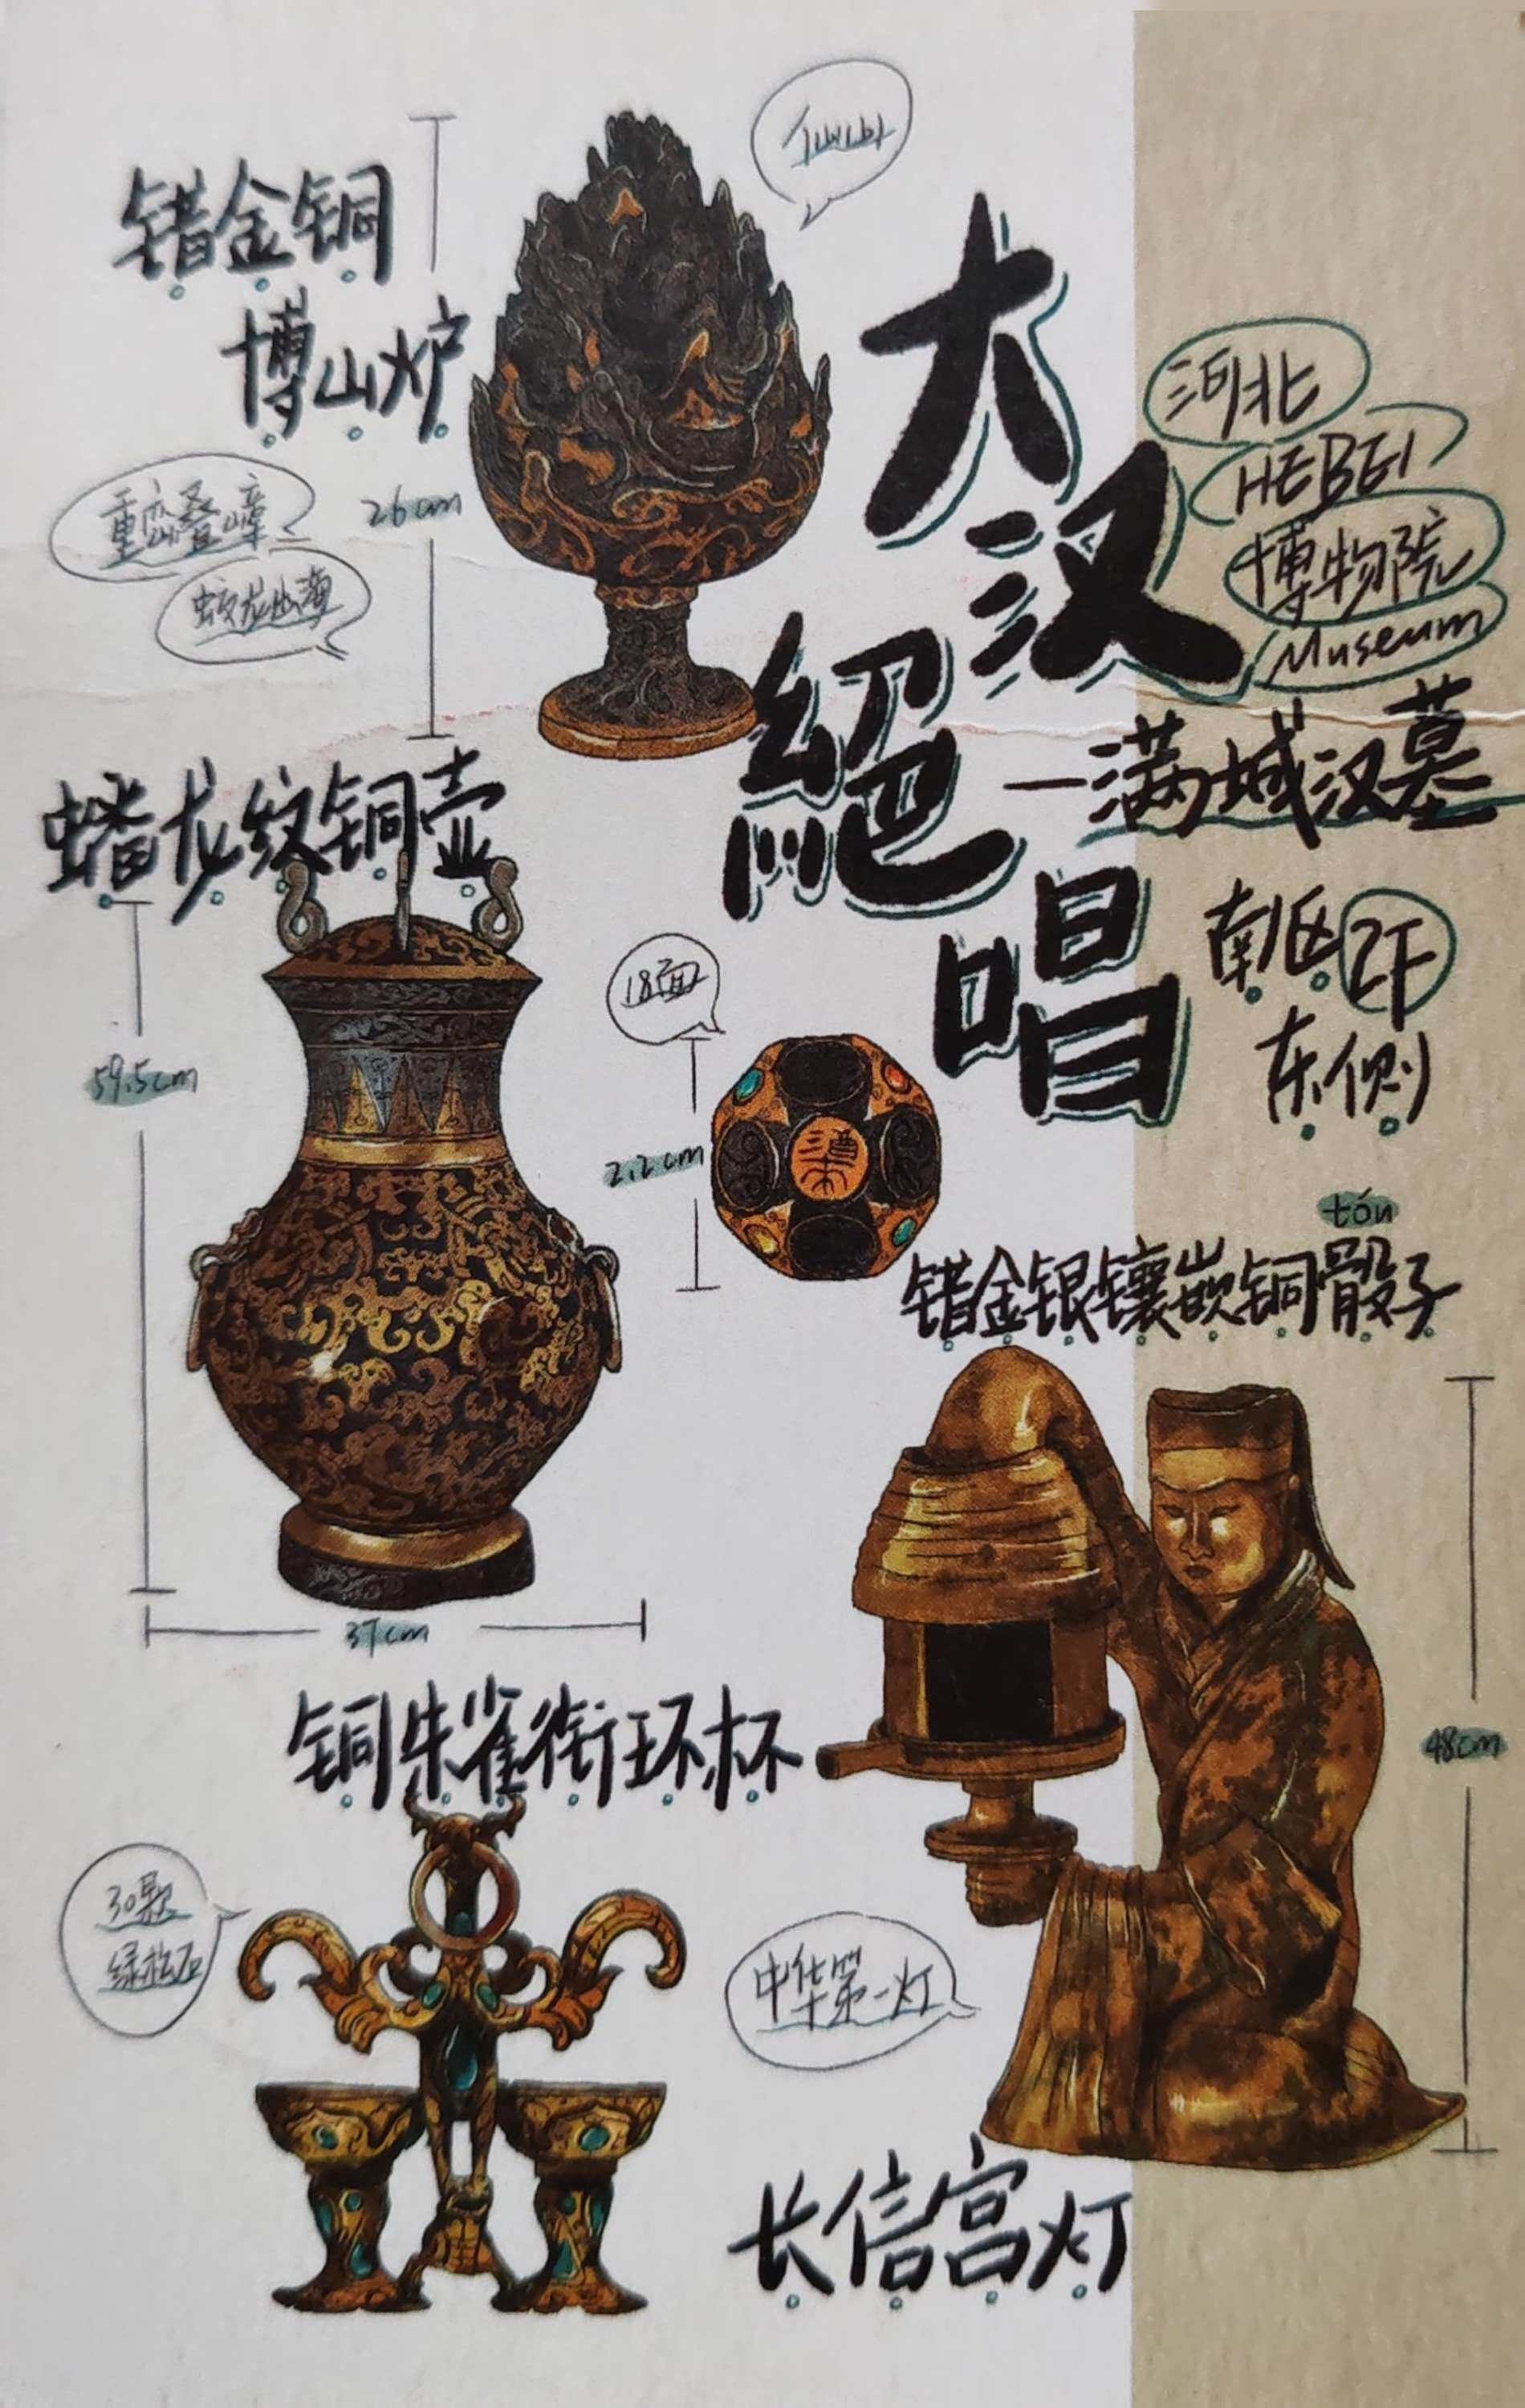 仙山
错金铜
博山炉
重峦叠嶂
蛟龙出海
26cm
大汉
絕唱
河北
HEBEI
博物院
Museum
—满城汉墓
南区2F
东侧
蟠龙纹铜壶
59.5cm
37cm
18面
2.2cm
tóu
错金银镶嵌铜骰子
48cm
铜朱雀衔环杯
30颗
绿松石
中华第一灯
长信宫灯